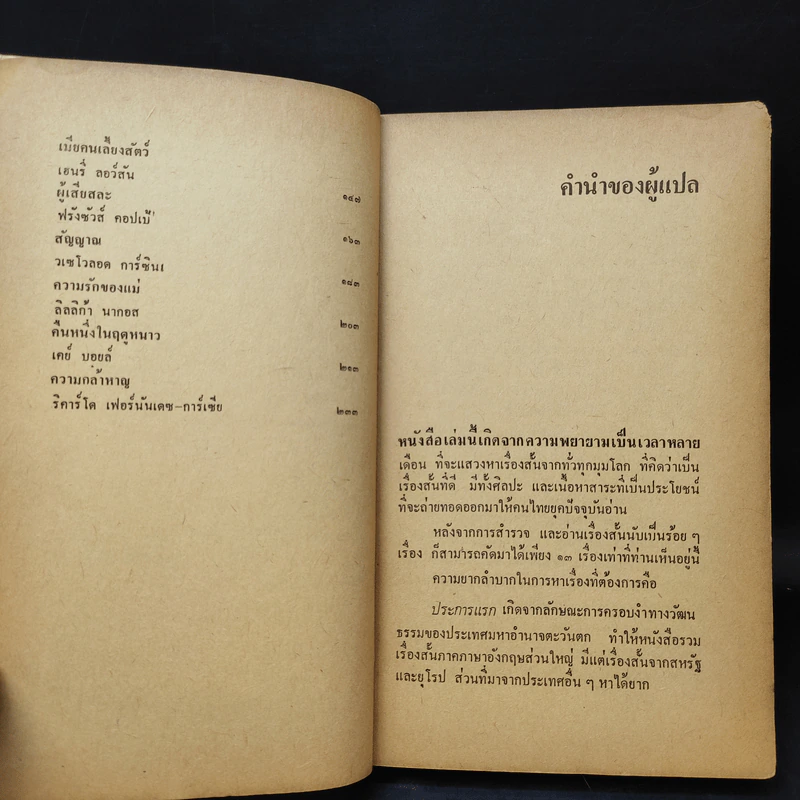 เมียคนเลี้ยงสัตว์
เฮนรี่ ลอว์สัน ๑๔๗
ผู้เสียสละ
ฟรังซัวส์ คอปเป้ ๑๖๓
สัญญาณ
วเซโวลอด การ์ซิน ๑๘๓
ความรักของแม่
ลิลลิก้า นากอส ๒๐๓
คืนหนึ่งในฤดูหนาว
เคย์ บอยล์ ๒๑๓
ความกล้าหาญ
ริคาร์โด เฟอร์นันเดซ-การ์เซีย ๒๓๓
คำนำของผู้แปล
หนังสือเล่มนี้เกิดจากความพยายามเป็นเวลาหลาย
เดือน ที่จะแสวงหาเรื่องสั้นจากทั่วทุกมุมโลก ที่คิดว่าเป็น
เรื่องสั้นที่ดี มีทั้งศิลปะ และเนื้อหาสาระที่เป็นประโยชน์
ที่จะถ่ายทอดออกมาให้คนไทยยุคปัจจุบันอ่าน
หลังจากการสำรวจ และอ่านเรื่องสั้นนับเป็นร้อย ๆ
เรื่อง ก็สามารถคัดมาได้เพียง ๑๓ เรื่องเท่าที่ท่านเห็นอยู่นี้
ความยากลำบากในการหาเรื่องที่ต้องการคือ
ประการแรก เกิดจากลักษณะการครอบงำทางวัฒน
ธรรมของประเทศมหาอำนาจตะวันตก ทำให้หนังสือรวม
เรื่องสั้นภาคภาษาอังกฤษส่วนใหญ่ มีแต่เรื่องสั้นจากสหรัฐ
และยุโรป ส่วนที่มาจากประเทศอื่น ๆ หาได้ยาก